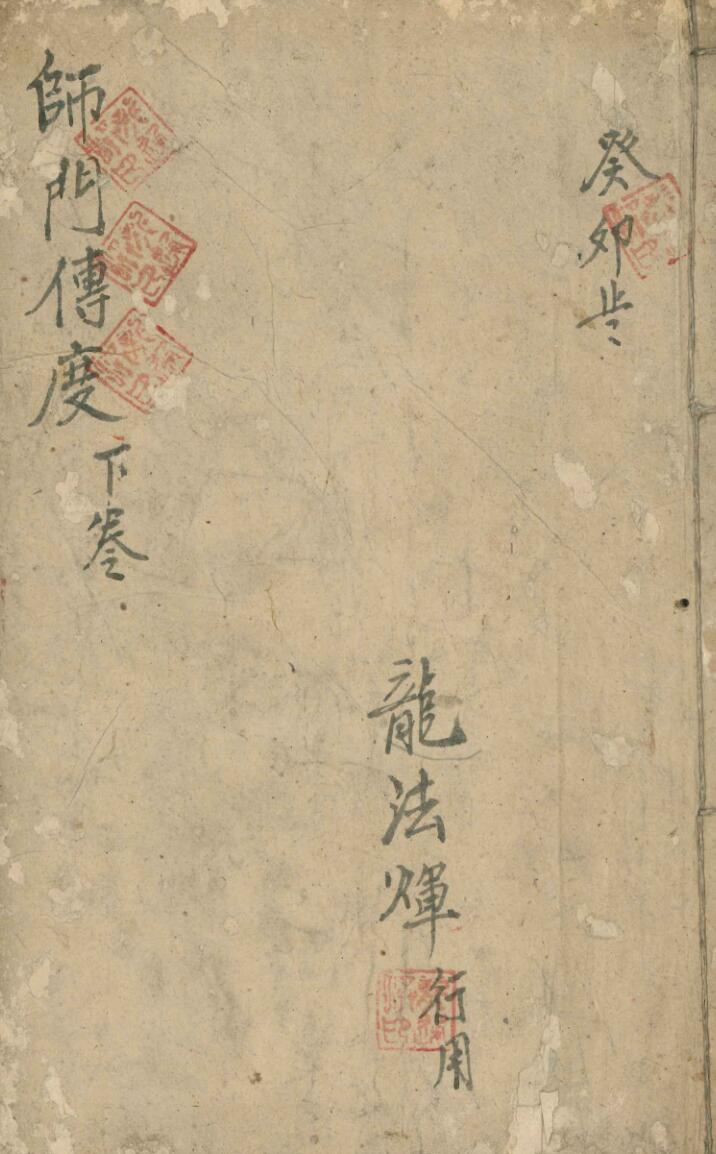 癸卯歲
龍法煇行用
師門傳度下卷